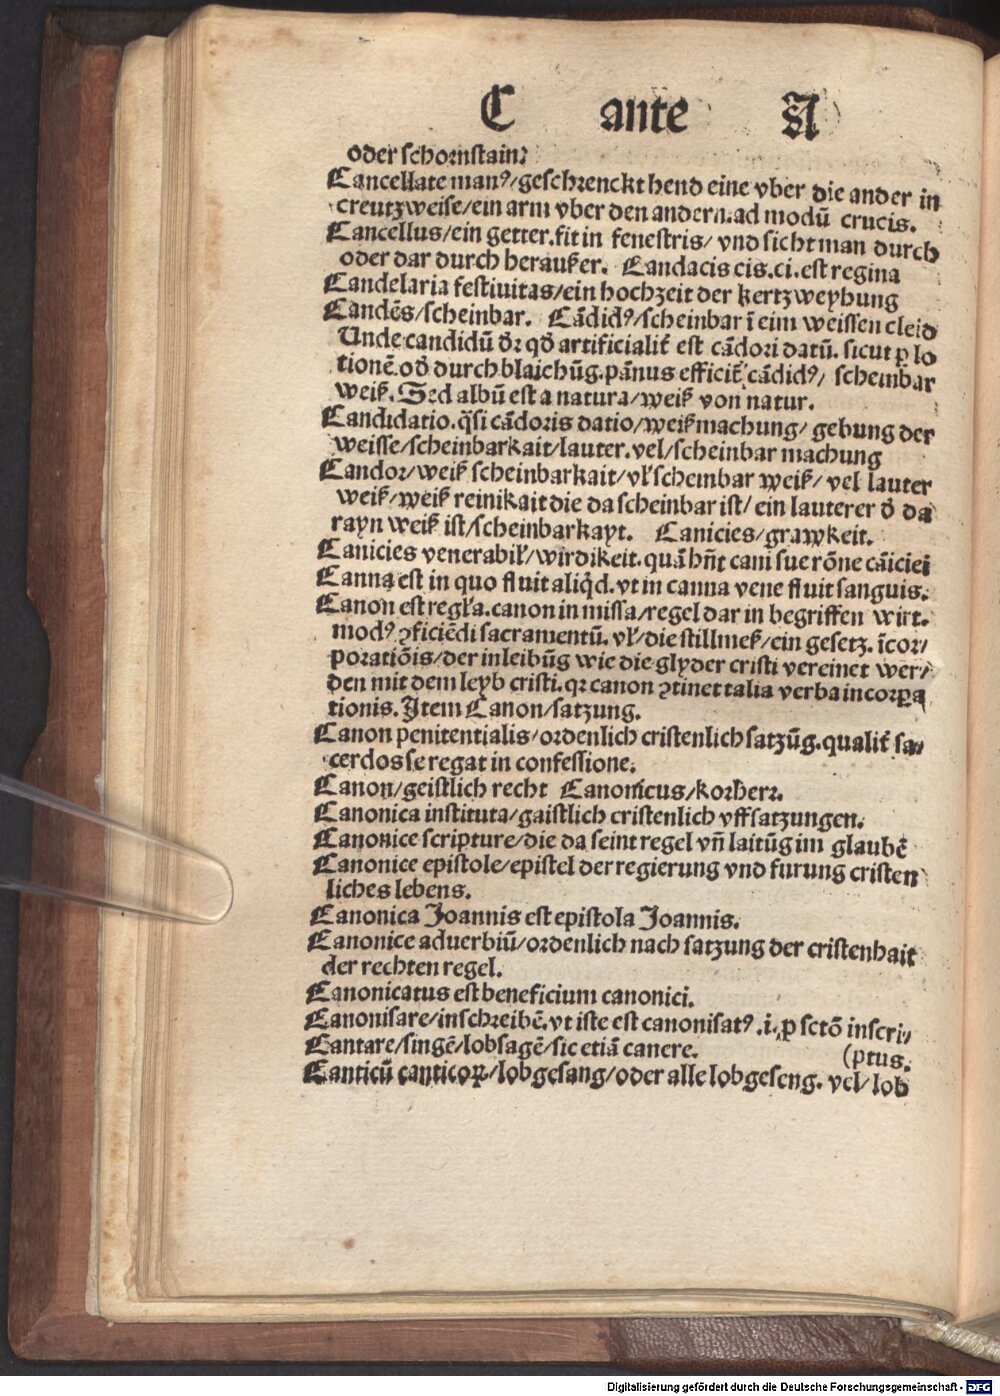 C ante A
oder schornstain.
Cancellate manꝰ/geschrenckt hend eine vber die ander in
creutzweise/ein arm vber den andern.ad modū crucis.
Cancellus/ein getter.fit in fenestris/ vnd sicht man durch
oder dar durch herauß er. Candacis cis.ci.est regina
Candelaria festiuitas/ein hochzeit der kertzweyhung
Candēs/scheinbar. Cādidꝰ/scheinbar ī eim weissen cleid
Unde candidū dr̄ qd̓ artificialit̓ est cādori datū. sicut ꝑ lo
tionē.od̓ durch blaichūg.pānus efficit̓ cādidꝰ/ scheinbar
weiß. Sed albū est a natura/weiß von natur.
Candidatio.q̄si cādoris datio/weißmachung/ gebung der
weisse/scheinbarkait/lauter.vel/scheinbar machung
Candor/weiß scheinbarkait/vł scheinbar weiß/ vel lauter
weiß/weiß reinikait die da scheinbar ist/ ein lauterer d̓ da
rayn weiß ist/scheinbarkayt. Canicies/grawkeit.
Canicies venerabił/wirdikeit.quā hn̄t cani sue rōne cāiciei
Canna est in quo fluit aliqd̓.vt in canna vene fluit sanguis.
Canon est regła.canon in missa/regel dar in begriffen wirt.
modꝰ ꝯficiēdi sacramentū. vł/die stillmeß/ein gesetz. īcor/
poratiōis/der inleibūg wie die glyder cristi vereinet wer/
den mit dem leyb cristi.qr canon ꝯtinet talia verba incorꝑa
tionis. Item Canon/satzung.
Canon penitentialis/ordenlich cristenlich satzūg.qualit̓ sa/
cerdos se regat in confessione.
Canon/geistlich recht Canonicus/korherr.
Canonica instituta/gaistlich cristenlich vffsatzungen.
Canonice scripture/die da seint regel vn̄ laitūg im glaubē
Canonice epistole/epistel der regierung vnd furung cristen
liches lebens.
Canonica Joannis est epistola Joannis.
Canonice aduerbiū/ordenlich nach satzung der cristenhait
der rechten regel.
Canonicatus est beneficium canonici.
Canonisare/inschreibē.vt iste est canonisatꝰ .i. ꝑ sctō inscri/
Cantare/singē/lobsagē/sic etiā canere. (ptus.
Canticū canticoꝝ/lobgesang/oder alle lobgeseng. vel/lob
Digitalisierung gefördert durch die Deutsche Forschungsgemeinschaft - DFG